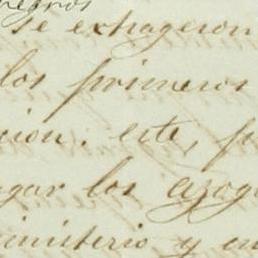 negros
se exhageron
los primeros
cion. este, p
gar los azog
ministerio y en